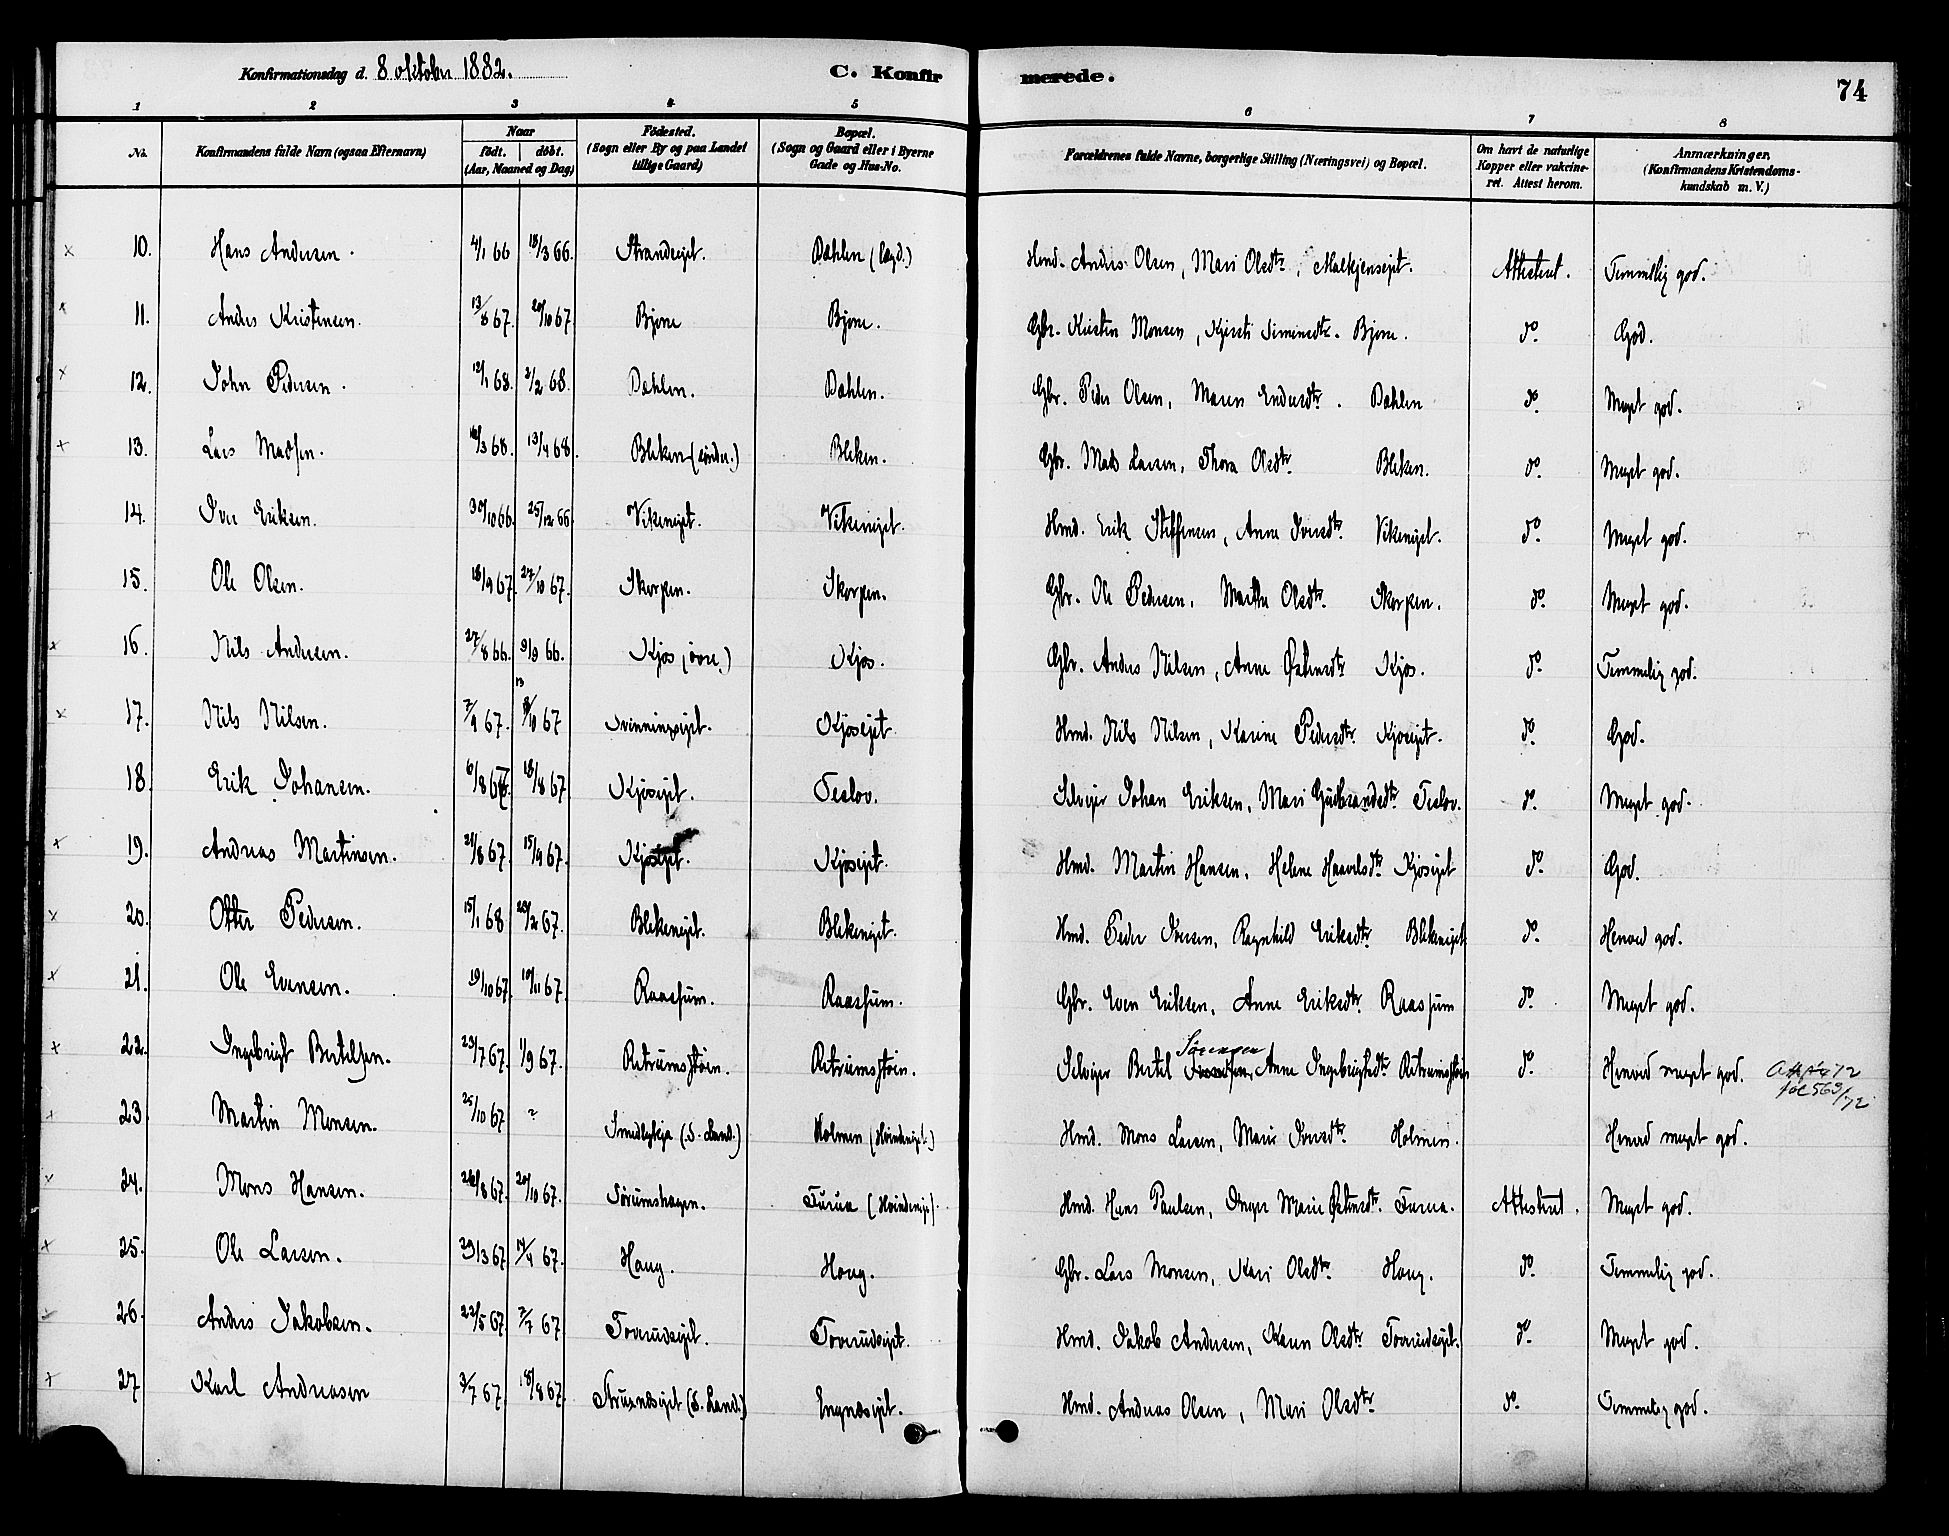 Konfirmationsdag d. 8 oktober 1882. C. Konfirmerede. 74
1 2 3 4 5 6 7 8
No. Konfirmandens fulde Navn (ogsaa Efternavn) Naar født. døbt. (Aar, Maaned og Dag) Fødested. (Sogn eller By og paa Landet tillige Gaard) Bopæl. (Sogn og Gaard eller i Byerne Gade og Hus-No. Forældrenes fulde Navne, borgerlige Stilling (Næringsvei) og Bopæl. Om havt de naturlige Kopper eller vakcineret. Attest herom. Anmærkninger. (Konfirmandens Kristendomskundskab m. V.)
× 10. Hans Andersen. 4/1 66 18/3 66. Strandeiet. Dæhlen (lægd.) Hmd. Anders Olsen, Mari Olsdtr, Malkjenseiet. Attesteret. Temmelig god.
× 11. Anders Kristensen. 13/8 67. 20/10 67. Bjone Bjone. Gbr. Kristen Monsen, Kjersti Simensdtr. Bjone. do. God.
× 12. John Pedersen. 12/1 68. 2/2 68. Dæhlen. Dæhlen. Gbr. Peder Olsen, Maren Endersdtr. Dæhlen do. Meget god.
× 13. Lars Madsen. 10/3 68. 13/4 68. Bleken (søndre.) Bleken. Gbr. Mads Larsen, Thora Olsdtr Bleken. do. Meget god.
14. Iver Eriksen. 30/10 66. 25/12 66. Vikeneiet. Vikeneiet. Hmd. Erik Steffensen, Anne Iversdtr. Vikeneiet. do. Meget god.
15. Ole Olsen. 18/9 67. 27/10 67. Skorpen. Skorpen. Gbr. Ole Pedersen, Marthe Olsdtr. Skorpen. do. Meget god.
× 16. Nils Andersen. 27/8 66. 9/9 66. Kjos (øvre) Kjos. Gbr. Anders Nilsen, Anne Østensdtr Kjos. do. Temmelig god.
× 17. Nils Nilsen. 7/9 67. 13/10 67 Svenningseiet. Kjoseiet Hmd. Nils Nilsen, Karine Pedersdtr. Kjoseiet. do. God.
18. Erik Johansen. 6/8 67. 18/8 67. Kjoseiet. Teslov. Selveier Johan Eriksen, Mari Gudbrandsdtr Teslov. do. Meget god.
× 19. Andreas Martinsen. 21/8 67. 15/9 67. Kjoseiet. Kjoseiet. Hmd. Martin Hansen, Helene Haavelsdtr. Kjoseiet do. God.
× 20. Otter Pedersen. 15/1 68 23/2 67. Blekeneiet. Blekeneiet. Hmd. Peder Iversen, Ragnhild Eriksdtr Blekeneiet. do. Henved god.
× 21. Ole Evensen. 19/10 67. 10/11 67. Raassum. Raassum. Gbr. Even Eriksen, Anne Eriksdtr. Raassum do. Meget god.
× 22. Ingebrigt Bertelsen. 23/7 67. 1/9 67. Retrumsstøen. Retrumsstøen. Selveier Bertel Sørensen, Anne Ingebrigtsdtr Retrumsstøen do. Henved meget god. Att. 4/4 72 fol 563/72
23 Martin Monsen. 25/10 67 ? Smedbykja (S. Land.) Holmen (Hvindeneiet) Hmd. Mons Larsen, Marie Iversdtr. Holmen. Henved meget god.
× 24. Mons Hansen. 26/8 67. 20/10 67. Sørumshagen. Furua (Hvindeneie). Hmd. Hans Paulsen, Inger Marie Østensdtr. Furua. Attesteret. Meget god.
× 25. Ole Larsen. 29/3 67 14/4 67. Haug. Haug. Gbr. Lars Monsen, Kari Olsdtr. Haug. do. Temmelig god.
26. Anders Jakobsen. 22/5 67. 7/7 67 Toverudseiet. Toverudseiet. Hmd. Jakob Andersen, Karen Olsdtr Toverudseiet. do. Meget god.
× 27 Karl Andreasen 3/7 67. 18/8 67. Struxnæseiet (S. Land.) Engnæseiet. Hmd. Andreas Olsen, Mari Olsdtr do. Temmelig god.